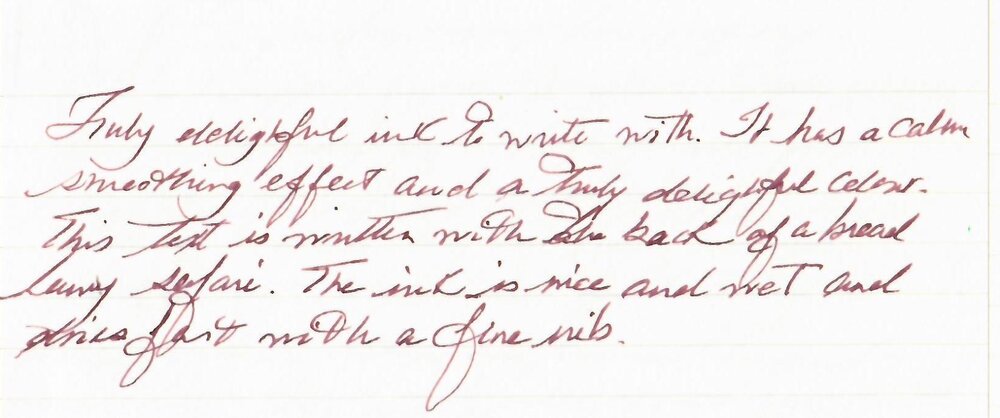 Truly delightful ink to write with. It has a calm
smoothing effect and a truly delightful color.
This text is written with the back of a broad
Lamy Safari. The ink is nice and wet and
dries fast with a fine nib.